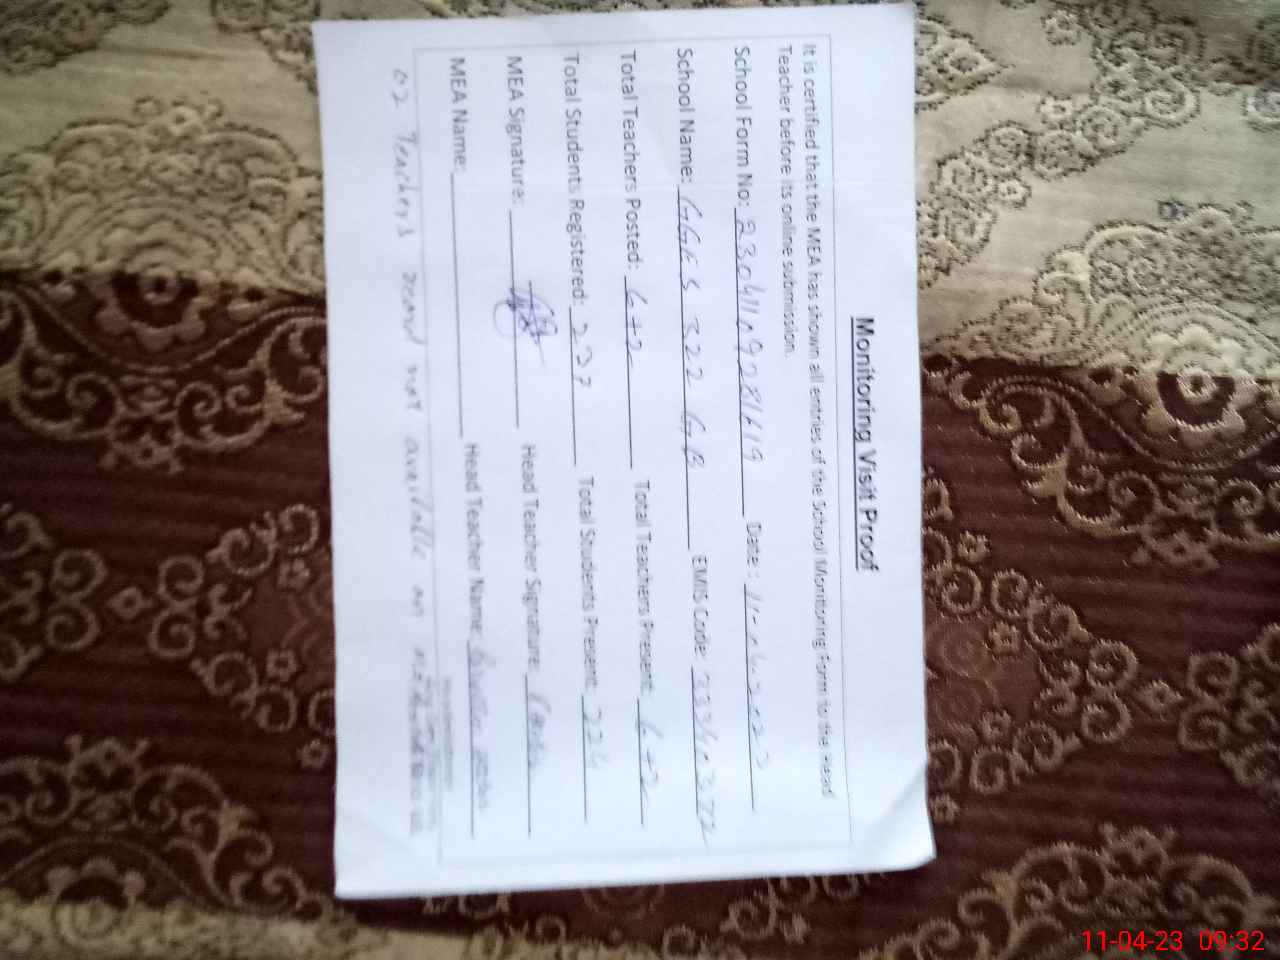 Monitoring Visit Proof
It is certified that the MEA has shown all entries of the School Monitoring Form to the Head
Teacher before its online submission.
School Form No: 23041109281619 Date: 11-04-2023
School Name: GGES 322 GB EMIS Code: 33340372
Total Teachers Posted: 6+2 Total Teachers Present: 6+2
Total Students Registered: 237 Total Students Present: 224
MEA Signature: Head Teacher Signature:
MEA Name: Head Teacher Name:
02 Teachers record not available on
11-04-23 09:32